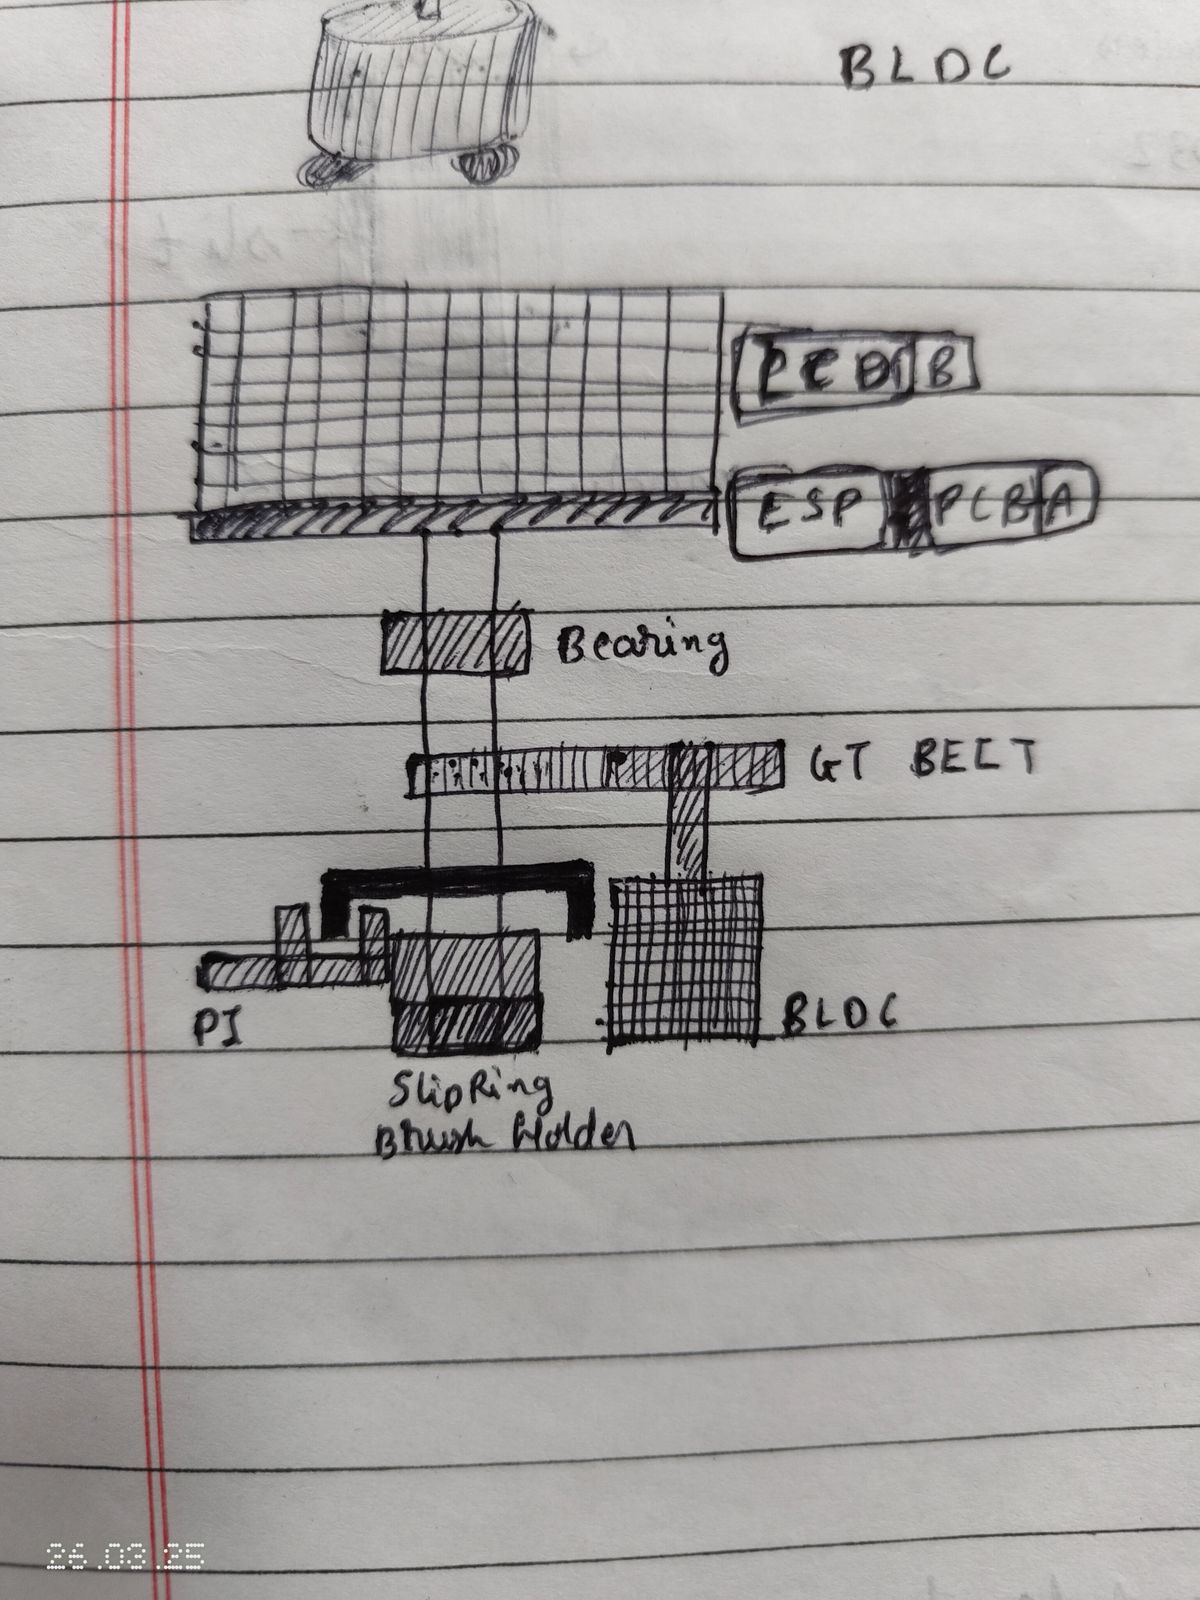 BLDC
PCB B
ESP PCB A
Bearing
GT BELT
PI
BLDC
SlipRing
Brush Holder
26.03.25